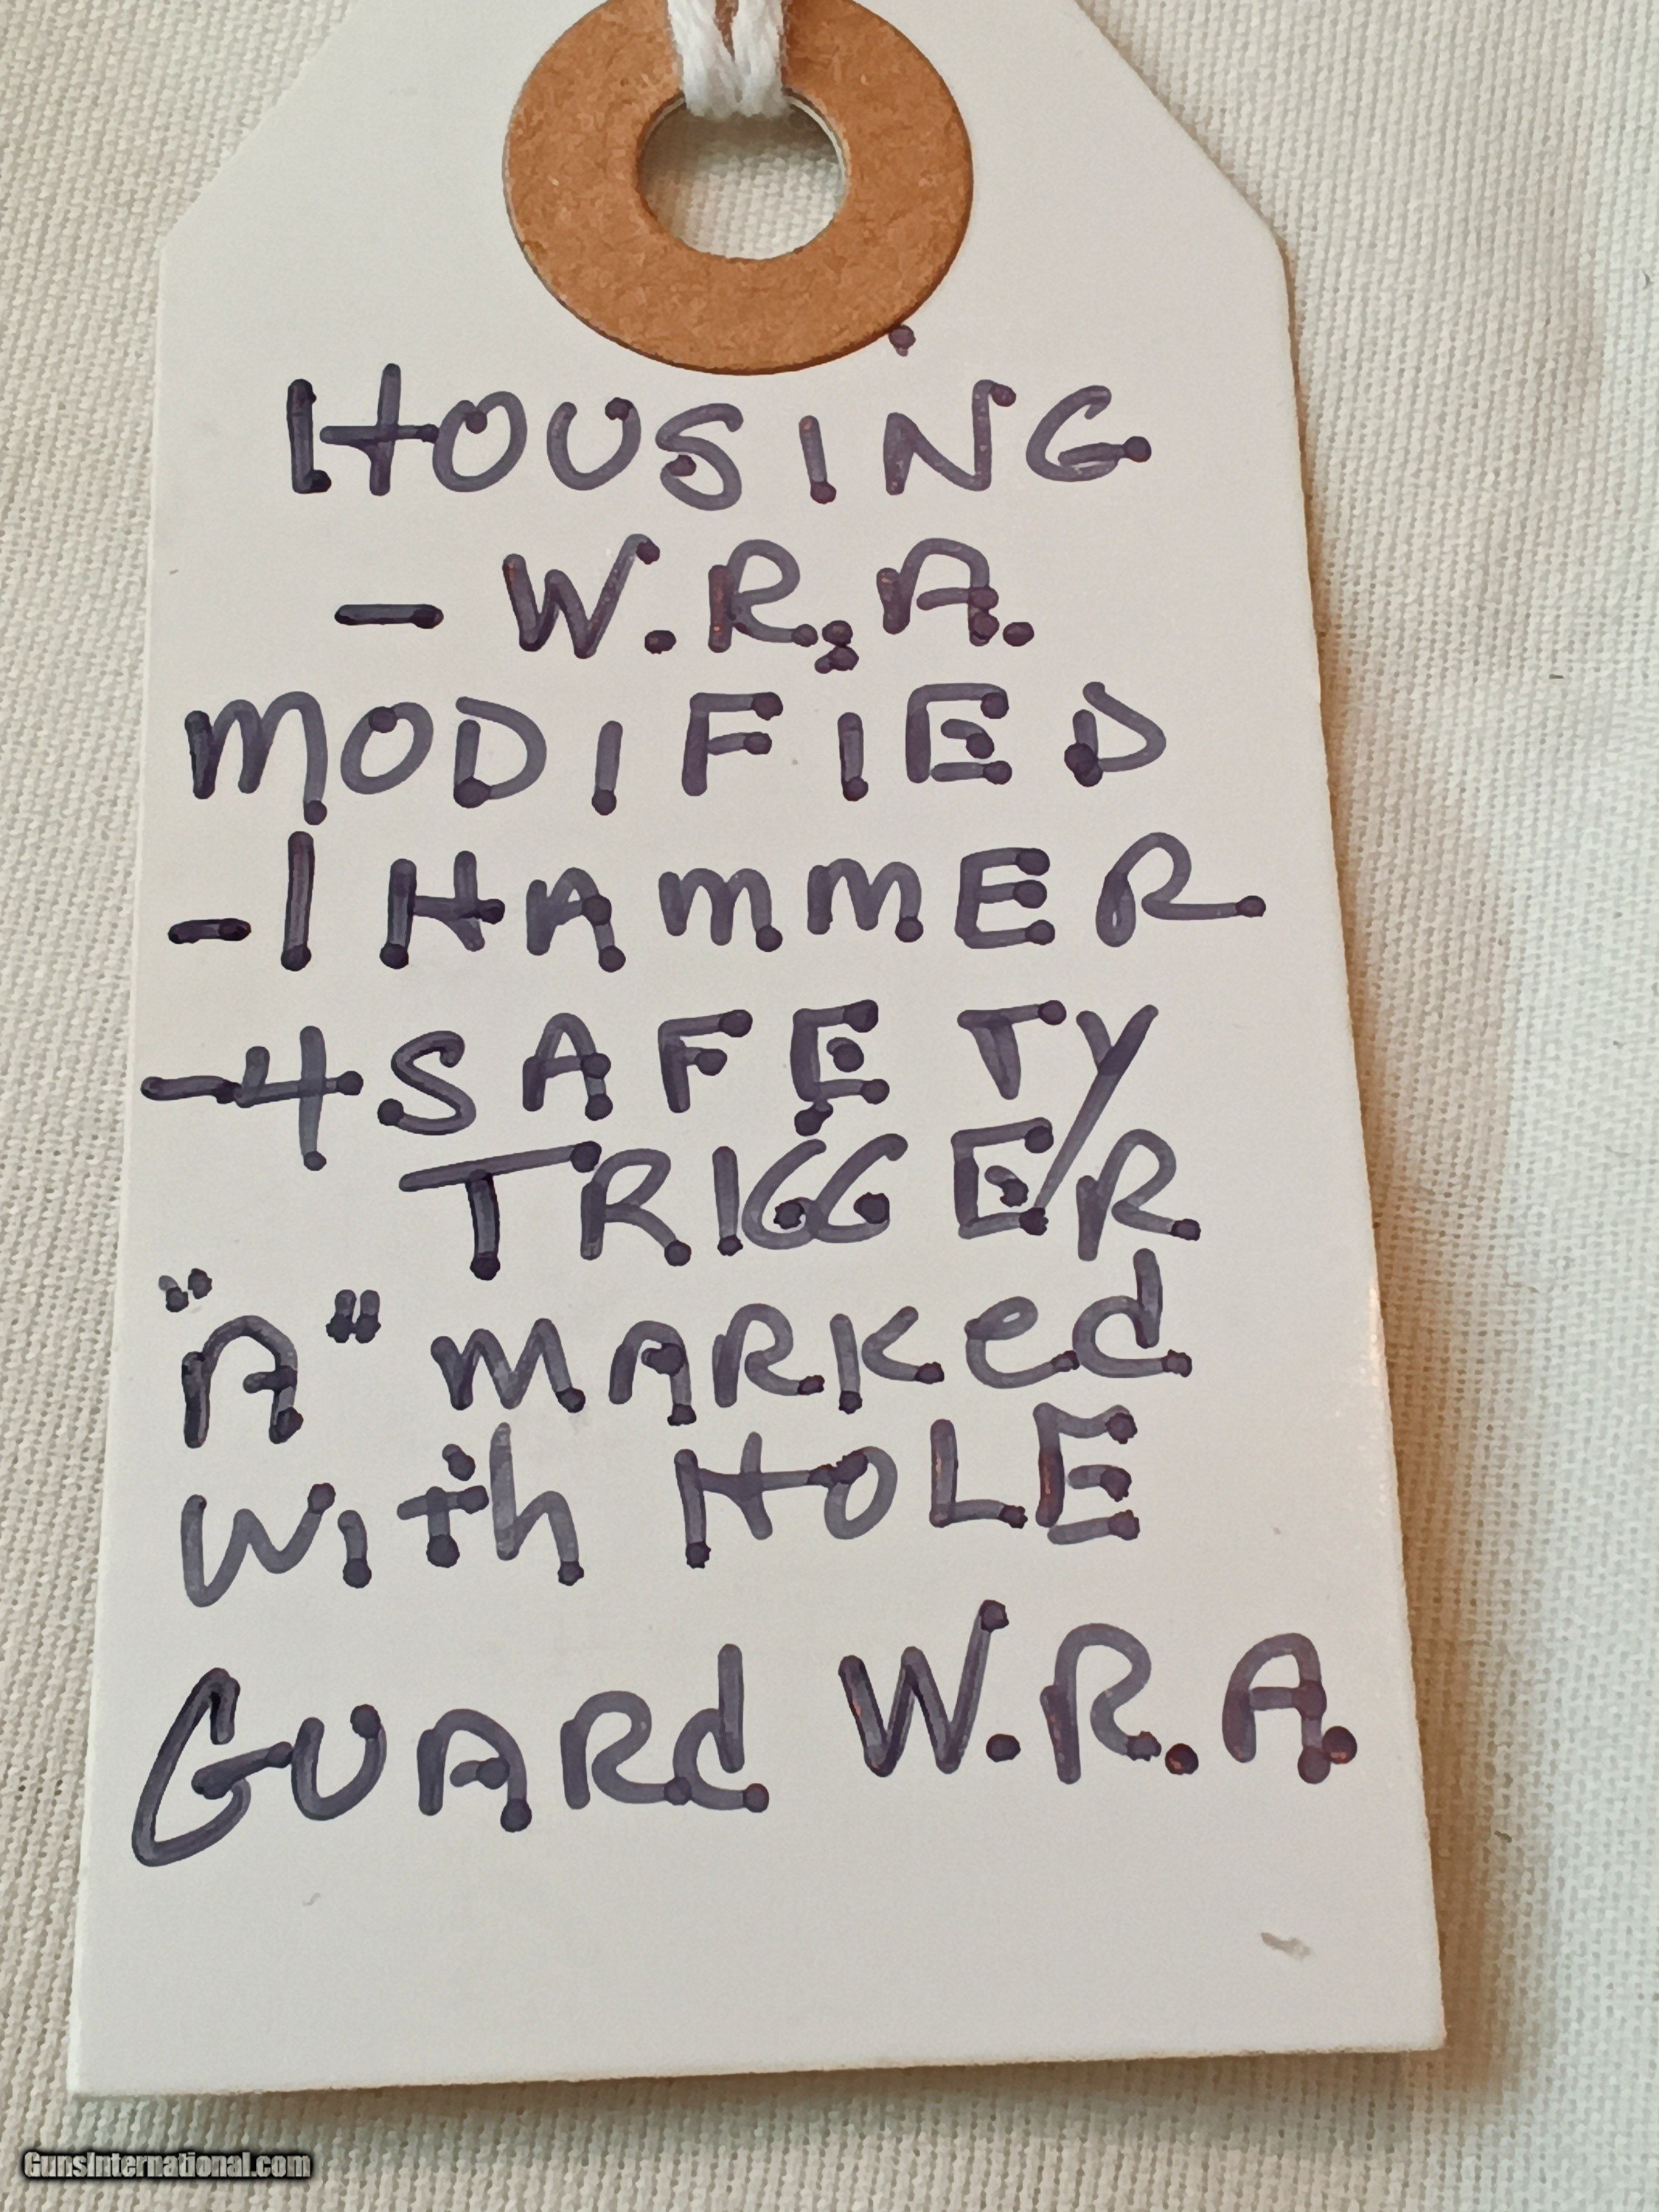 HOUSING
- W.R.A.
MODIFIED
-1 HAMMER
-4 SAFETY
TRIGGER
"A" MARKed
With HOLE
GUARd W.R.A.
GunsInternational.com